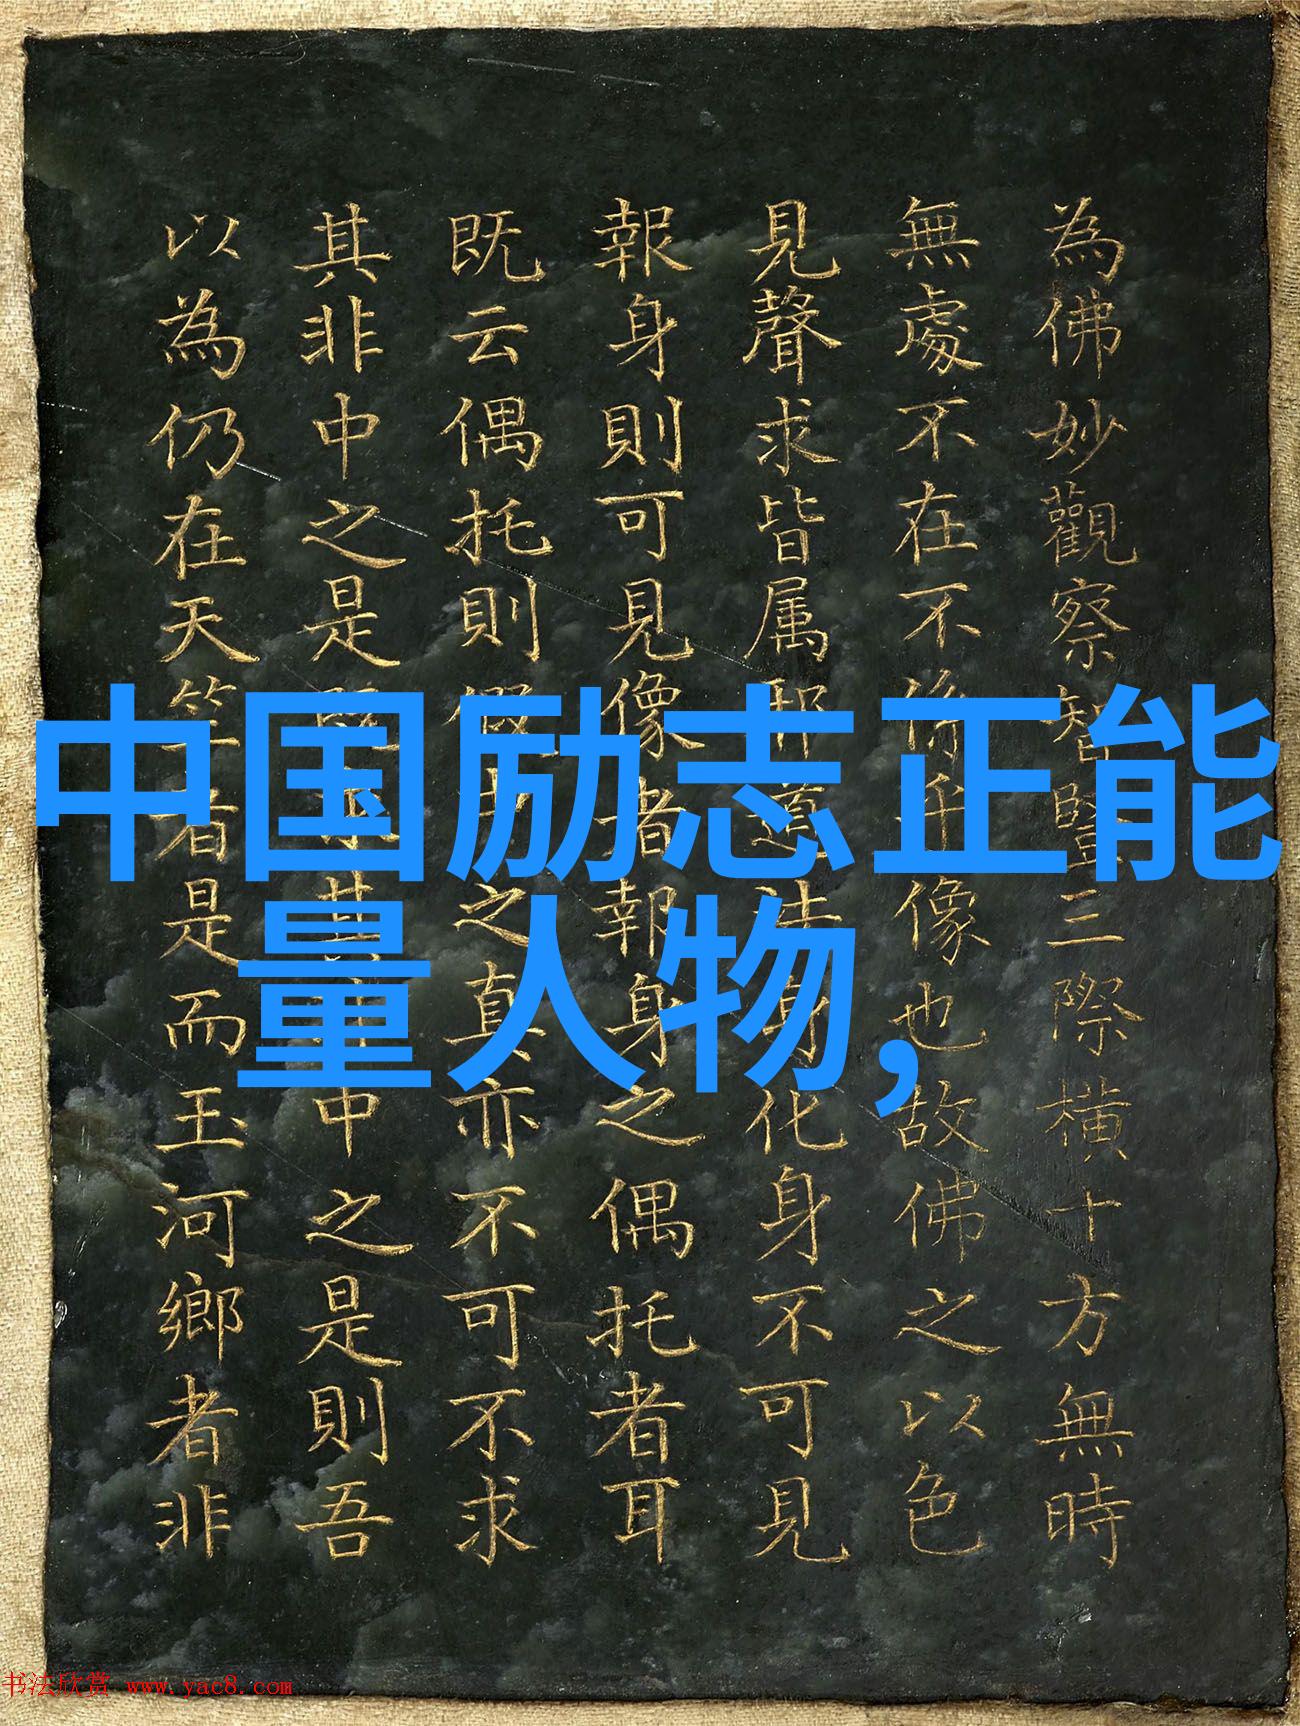 為佛妙觀察智豎三際橫十方無時
無處不在不係像也故佛之以色
見聲求皆属邪道法身化身不可見
報身則可見像者報身之偶托者耳
既云偶托則假之真亦不可不求
其非中之是既求其非中之是則吾
以為仍在天竺者是而玉河鄉者非
中国励志正能
量人物,
书法欣赏 www.yac8.com